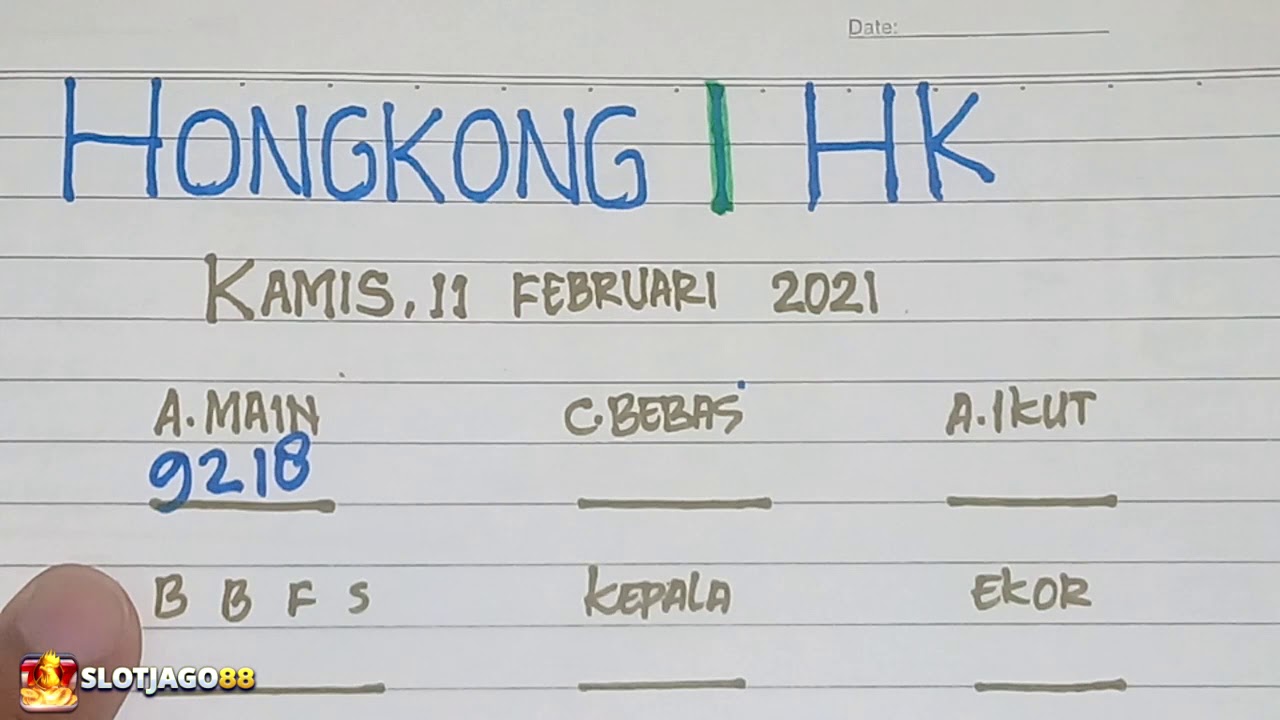 Date:
HONGKONG | HK
KAMIS, 11 FEBRUARI 2021
A.MAIN C.BEBAS A.IKUT
9218
B B F S KEPALA EKOR
SLOTJAGO88